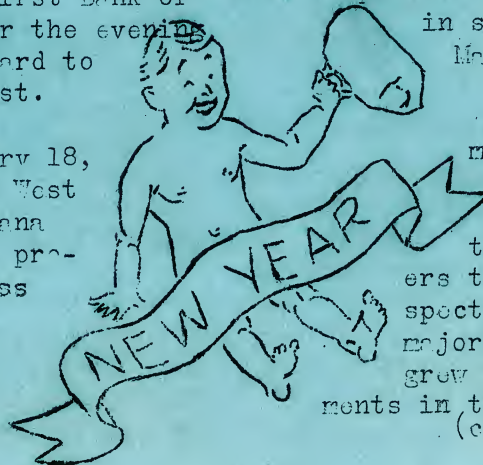 First Bank of
r the evening
ard to
st.
ry 18,
West
ana
pro-
ss
NEW YEAR
in s
Ma
m
t
ers t
spect
major
grew
ments in t
(c